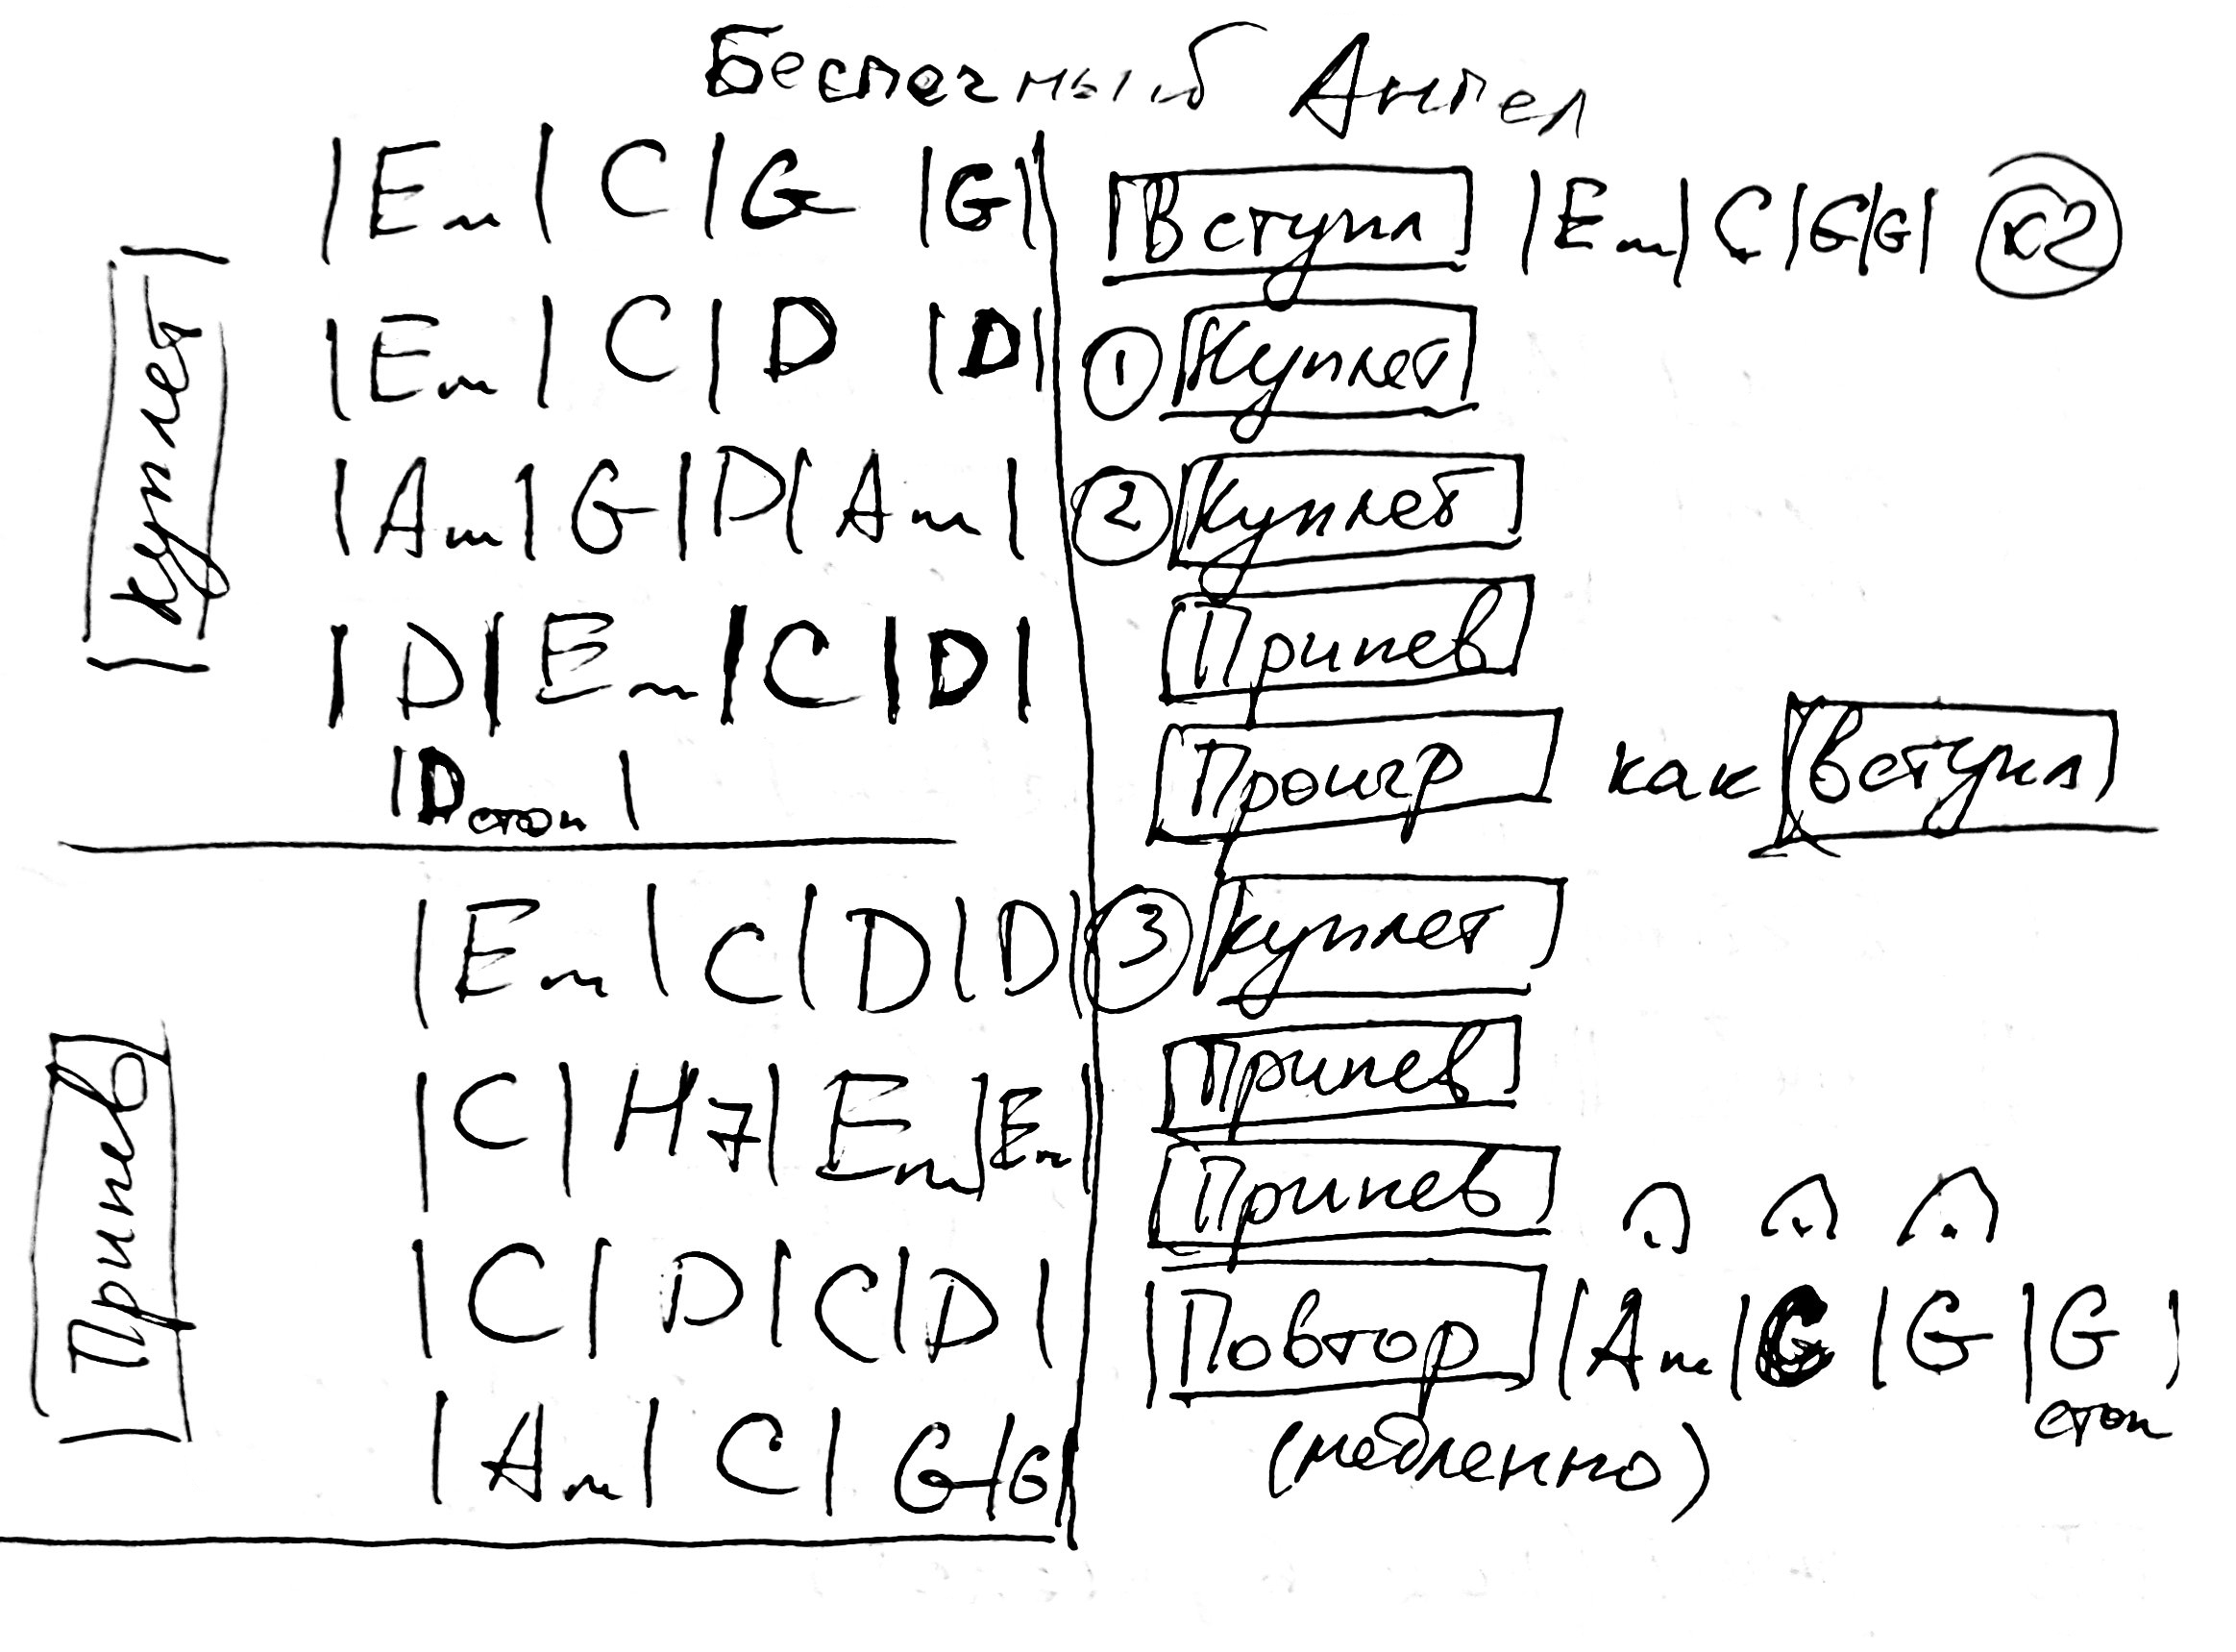 Беспечный Ангел
Куплет
|Em|C|G|G|
|Em|C|D|D|
|Am|G|D|Am|
|D|Em|C|D|
|D стоп|
Припев
|Em|C|D|D|
|C|H7|Em|Em|
|C|D|C|D|
|Am|C|G|G|
Вступл |Em|C|G|G| x2
1 Куплет
2 Куплет
Припев
Проигр как Вступл
3 куплет
Припев
Припев
Повтор |Am| |G|G|
стоп
(медленно)